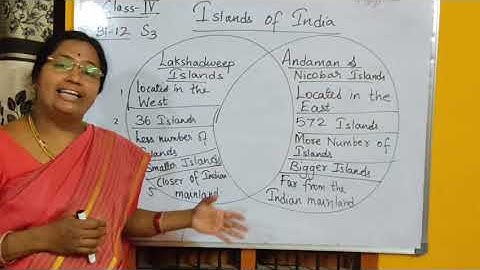 Class-IV
31-12 S3
Islands of India
Lakshadweep
Islands
1 Located in the
West
2 36 Islands
Less number of
Islands
Smaller Islands
5 Closer of Indian
mainland
Andaman &
Nicobar Islands
Located in the
East
572 Islands
More Number of
Islands
Bigger Islands
Far from the
Indian mainland